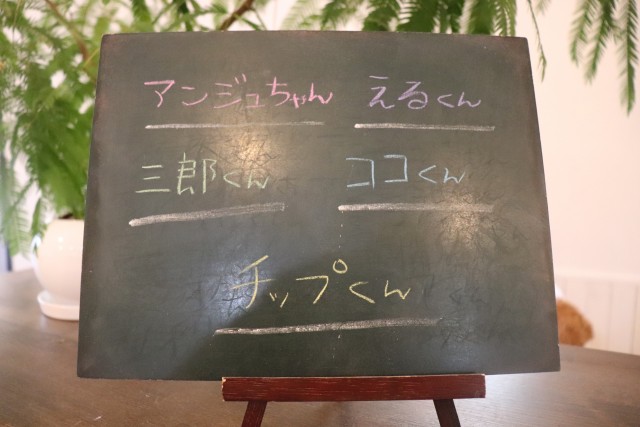 アンジュちゃん えるくん
三郎くん ココくん
チップくん